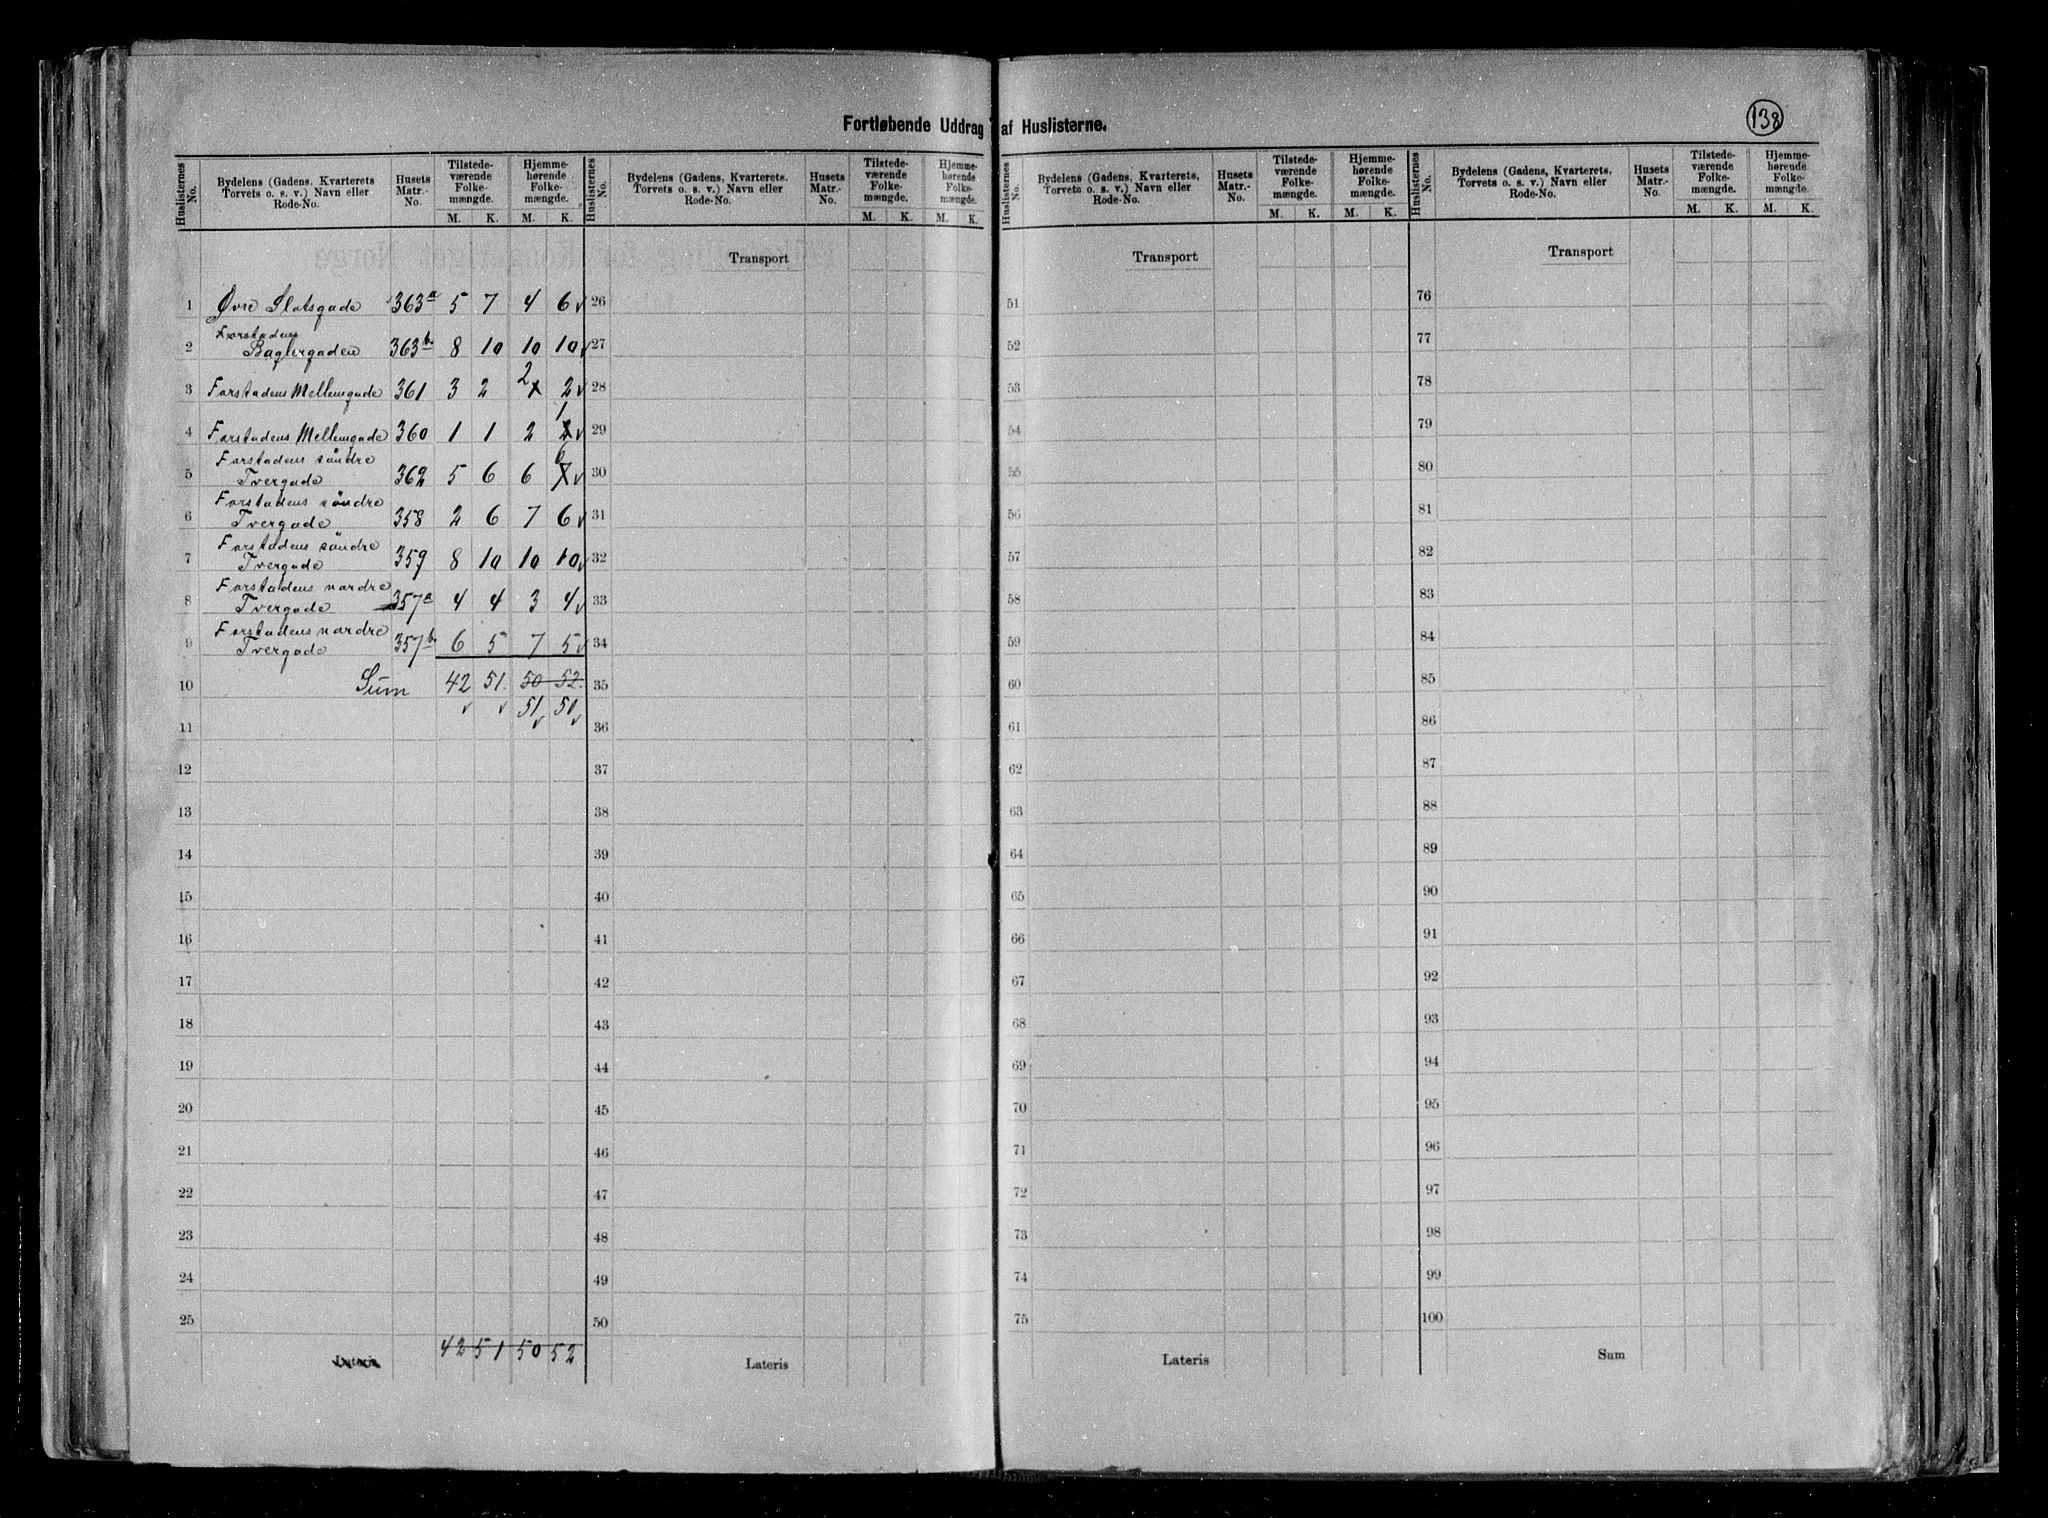 Fortløbende Uddrag af Huslisterne.
138
Huslisternes No. | Bydelens (Gadens, Kvarterets, Torvets o. s. v.) Navn eller Rode-No. | Husets Matr.-No. | Tilstedeværende Folkemængde. M. K. | Hjemmehørende Folkemængde. M. K.
1 Øvre Slotsgade 363a 5 7 4 6 ✓
2 Forstadens
Baglergaden 363b. 8 10 10 10 ✓
3 Forstadens Mellemgade 361 3 2 2 2 ✓
4 Forstadens Mellemgade 360 1 1 2 1 ✓
5 Forstadens söndre
Tvergade 362 5 6 6 6 ✓
6 Forstadens söndre
Tvergade 358 2 6 7 6 ✓
7 Forstadens söndre
Tvergade 359 8 10 10 10 ✓
8 Forstadens nordre
Tvergade 357a 4 4 3 4 ✓
9 Forstadens nordre
Tvergade 357b. 6 5 7 5 ✓
10 Sum 42 51. 50 52.
✓ ✓ 51 ✓ 50 ✓
11
12
13
14
15
16
17
18
19
20
21
22
23
24
25
Lateris 42 51 50 52
Huslisternes No. | Bydelens (Gadens, Kvarterets, Torvets o. s. v.) Navn eller Rode-No. | Husets Matr.-No. | Tilstedeværende Folkemængde. M. K. | Hjemmehørende Folkemængde. M. K.
Transport
26
27
28
29
30
31
32
33
34
35
36
37
38
39
40
41
42
43
44
45
46
47
48
49
50
Lateris
Huslisternes No. | Bydelens (Gadens, Kvarterets, Torvets o. s. v.) Navn eller Rode-No. | Husets Matr.-No. | Tilstedeværende Folkemængde. M. K. | Hjemmehørende Folkemængde. M. K.
Transport
51
52
53
54
55
56
57
58
59
60
61
62
63
64
65
66
67
68
69
70
71
72
73
74
75
Lateris
Huslisternes No. | Bydelens (Gadens, Kvarterets, Torvets o. s. v.) Navn eller Rode-No. | Husets Matr.-No. | Tilstedeværende Folkemængde. M. K. | Hjemmehørende Folkemængde. M. K.
Transport
76
77
78
79
80
81
82
83
84
85
86
87
88
89
90
91
92
93
94
95
96
97
98
99
100
Sum